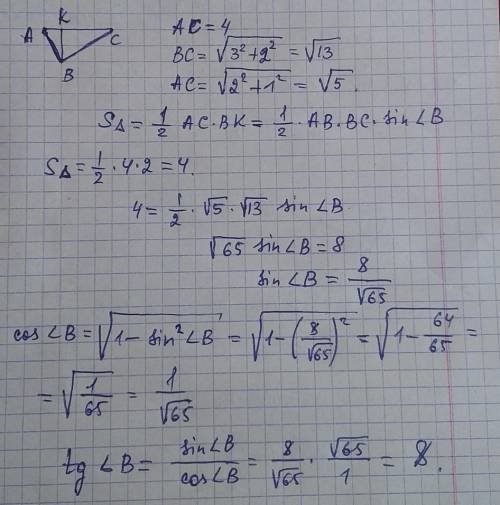 K
A C
B
AC = 4
BC = √(3² + 2²) = √13
AC = √(2² + 1²) = √5.
S△ = 1/2 AC · BK = 1/2 · AB · BC · sin ∠B
S△ = 1/2 · 4 · 2 = 4.
4 = 1/2 · √5 · √13 sin ∠B
√65 sin ∠B = 8
sin ∠B = 8/√65
cos ∠B = √(1 − sin² ∠B) = √(1 − (8/√65)²) = √(1 − 64/65) =
= √(1/65) = 1/√65
tg ∠B = sin ∠B / cos ∠B = 8/√65 · √65/1 = 8.